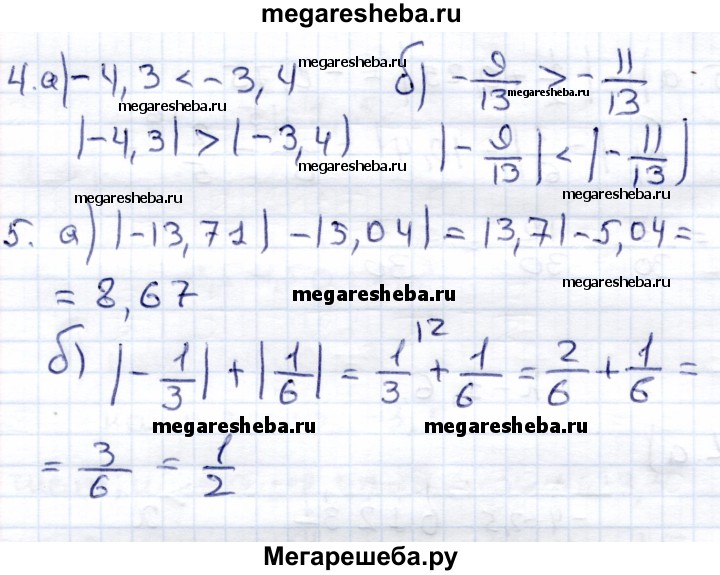 megaresheba.ru
4. а) -4,3 < -3,4 б) -9/13 > -11/13
megaresheba.ru megaresheba.ru megaresheba.ru
|-4,3| > |-3,4| |-9/13| < |-11/13|
megaresheba.ru megaresheba.ru megaresheba.ru
5. а) |-13,71| - |5,04| = 13,71 - 5,04 =
= 8,67 megaresheba.ru megaresheba.ru
б) |-1/3| + |1/6| = 1/3 \2 + 1/6 = 2/6 + 1/6 =
megaresheba.ru megaresheba.ru
= 3/6 = 1/2
megaresheba.ru
Мегарешеба.ру